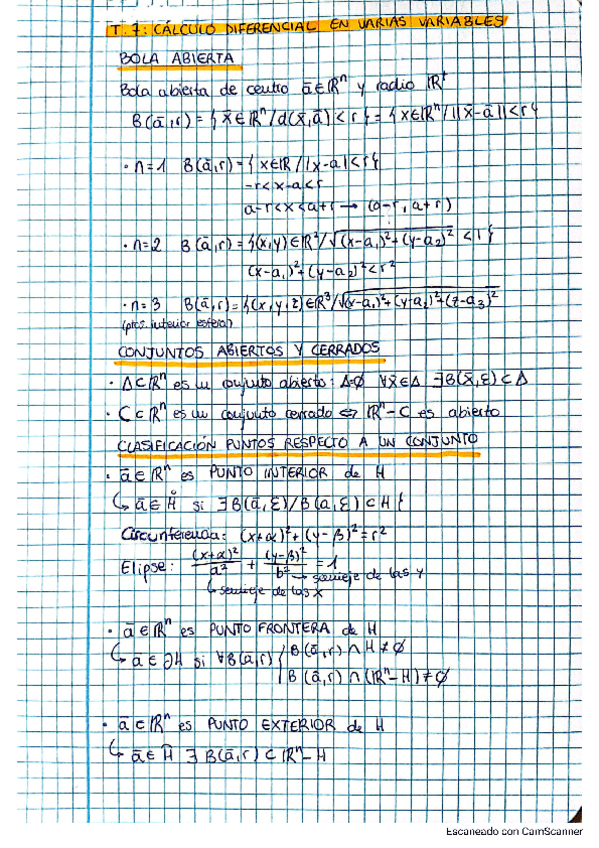 T.7: CÁLCULO DIFERENCIAL EN VARIAS VARIABLES
BOLA ABIERTA
Bola abierta de centro ā∈ℝⁿ y radio ℝ⁺
B(ā,r) = { x̄∈ℝⁿ/d(x̄,ā) < r} = { x∈ℝⁿ/||x̄-ā||<r}
· n=1 B(ā,r)={ x∈ℝ/|x-a|<r}
-r<x-a<r
a-r<x<a+r → (a-r, a+r)
· n=2 B(ā,r)={(x,y)∈ℝ²/√(x-a₁)²+(y-a₂)² <1}
(x-a₁)²+(y-a₂)²<r²
· n=3 B(ā,r)={(x,y,z)∈ℝ³/√(x-a₁)²+(y-a₂)²+(z-a₃)²
(ptos. interior esfera)
CONJUNTOS ABIERTOS Y CERRADOS
· Δ⊂ℝⁿ es un conjunto abierto: Δ=∅ ∀x̄∈Δ ∃B(x̄,ε)⊂Δ
· C⊂ℝⁿ es un conjunto cerrado ⇔ ℝⁿ-C es abierto
CLASIFICACIÓN PUNTOS RESPECTO A UN CONJUNTO
· ā∈ℝⁿ es PUNTO INTERIOR de H
↳ ā∈H̊ si ∃B(ā,ε)/B(a,ε)⊂H}
Circunferencia: (x+α)²+(y-β)²=r²
Elipse: (x+α)²/a² + (y-β)²/b² = 1
→ semieje de las y
↳ semieje de las x
· ā∈ℝⁿ es PUNTO FRONTERA de H
↳ ā∈∂H si ∀B(a,r) { B(ā,r)∩H≠∅
B(ā,r)∩(ℝⁿ-H)≠∅
· ā⊂ℝⁿ es PUNTO EXTERIOR de H
↳ ā∈H̄ ∃B(ā,r)⊂ℝⁿ-H
Escaneado con CamScanner